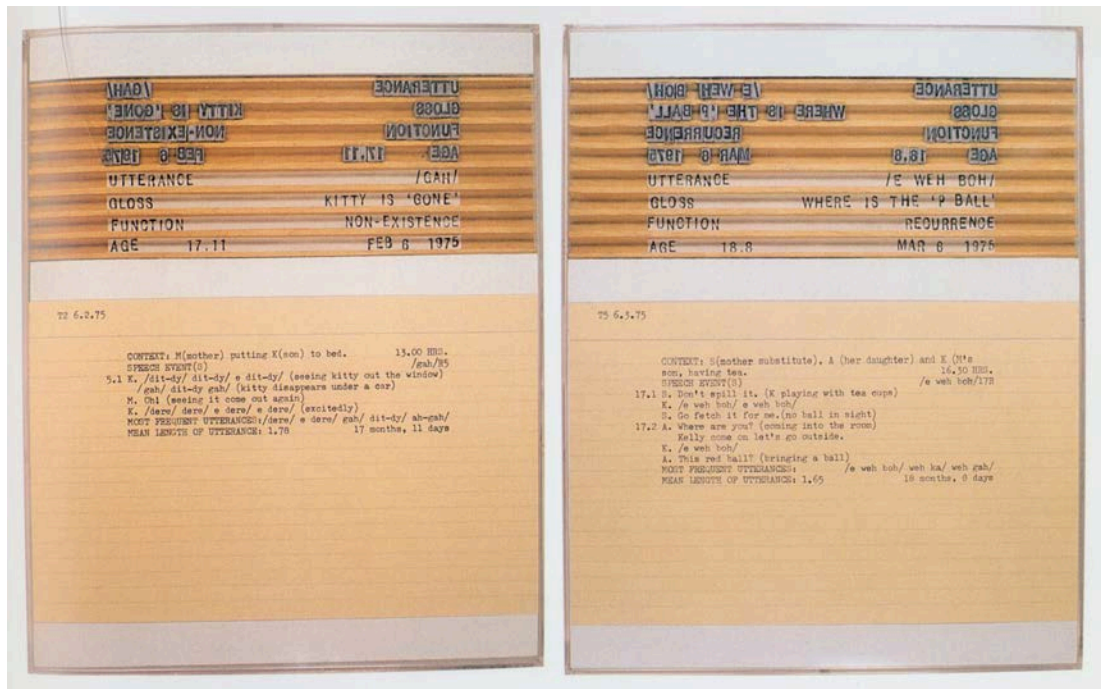 /GAH/ UTTERANCE
KITTY IS 'GONE' GLOSS
NON-EXISTENCE FUNCTION
FEB 6 1975 17.11 AGE
UTTERANCE /GAH/
GLOSS KITTY IS 'GONE'
FUNCTION NON-EXISTENCE
AGE 17.11 FEB 6 1975
T2 6.2.75
CONTEXT: M(mother) putting K(son) to bed. 13.00 HRS.
SPEECH EVENT(S) /gah/R5
5.1 K. /dit-dy/ dit-dy/ e dit-dy/ (seeing kitty out the window)
/gah/ dit-dy gah/ (kitty disappears under a car)
M. Oh! (seeing it come out again)
K. /dere/ dere/ e dere/ e dere/ (excitedly)
MOST FREQUENT UTTERANCES:/dere/ e dere/ gah/ dit-dy/ ah-gah/
MEAN LENGTH OF UTTERANCE: 1.78 17 months, 11 days
/E WEH BOH/ UTTERANCE
WHERE IS THE 'P BALL' GLOSS
RECURRENCE FUNCTION
MAR 6 1975 18.8 AGE
UTTERANCE /E WEH BOH/
GLOSS WHERE IS THE 'P BALL'
FUNCTION RECURRENCE
AGE 18.8 MAR 6 1975
T5 6.3.75
CONTEXT: S(mother substitute), A (her daughter) and K (M's
son, having tea. 16.30 HRS.
SPEECH EVENT(S) /e weh boh/17R
17.1 S. Don't spill it. (K playing with tea cups)
K. /e weh boh/ e weh boh/
S. Go fetch it for me.(no ball in sight)
17.2 A. Where are you? (coming into the room)
Kelly come on let's go outside.
K. /e weh boh/
A. This red ball? (bringing a ball)
MOST FREQUENT UTTERANCES: /e weh boh/ weh ka/ weh gah/
MEAN LENGTH OF UTTERANCE: 1.65 18 months, 8 days